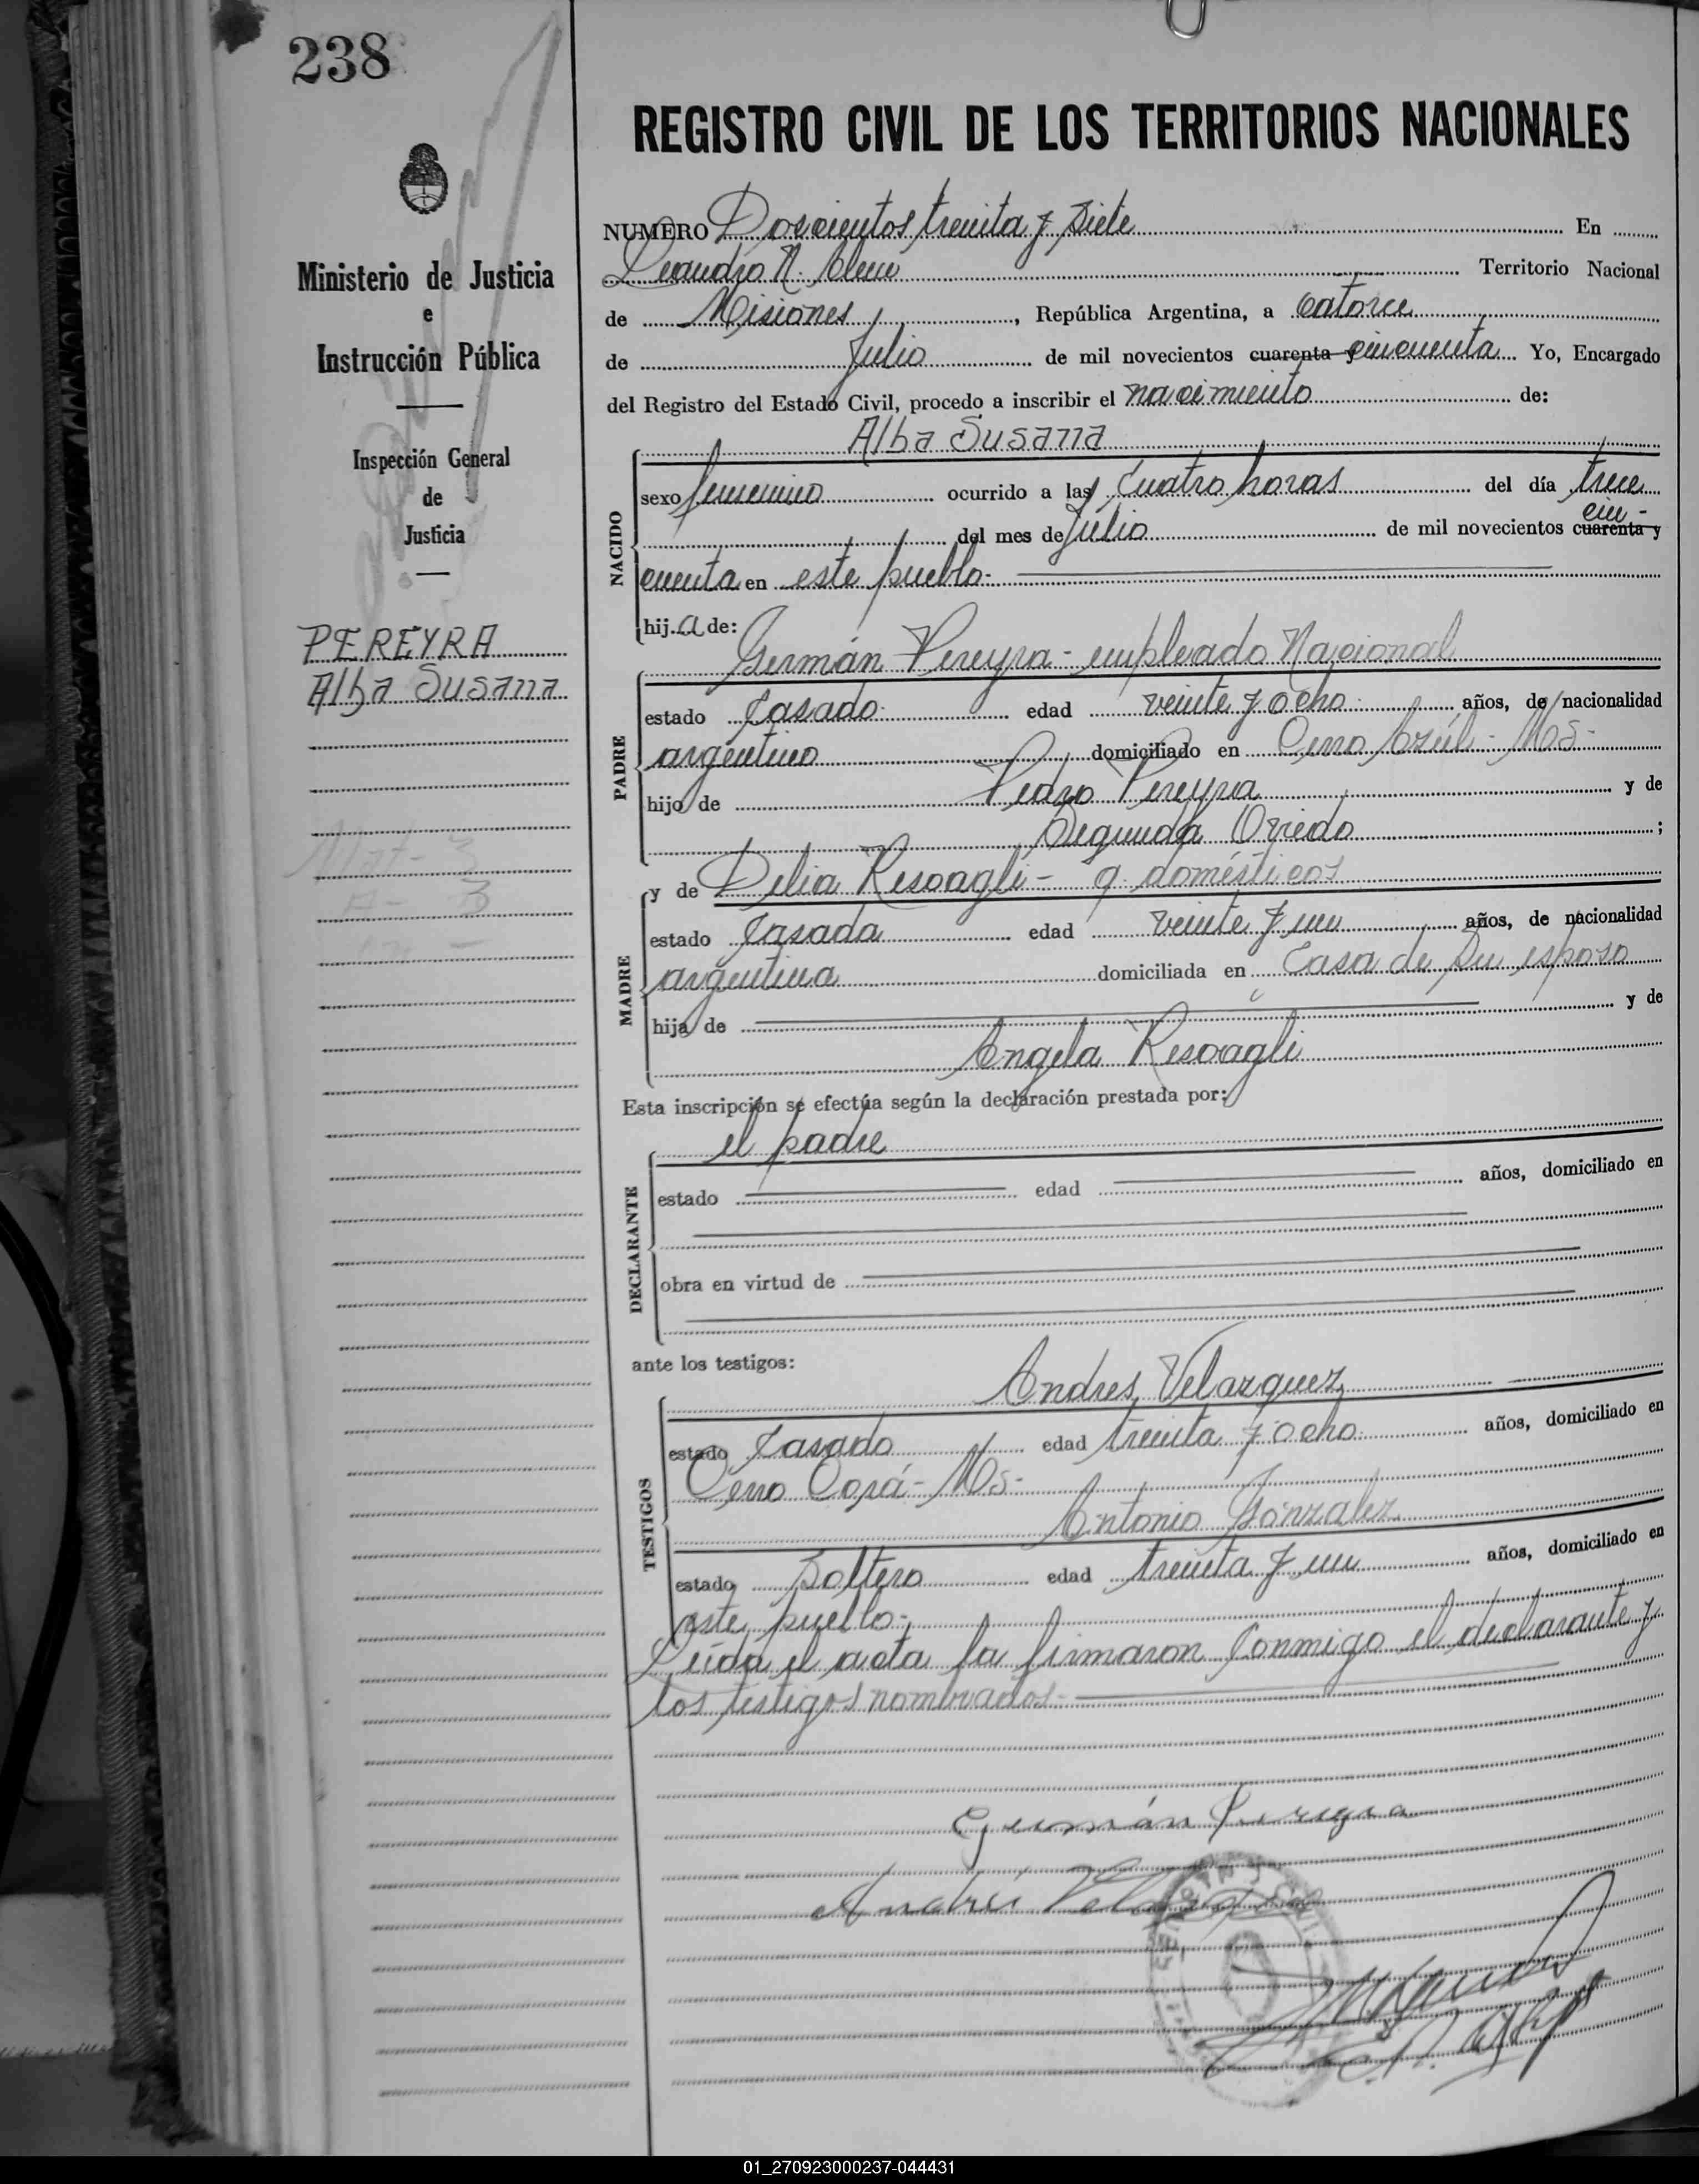 238
REGISTRO CIVIL DE LOS TERRITORIOS NACIONALES
Ministerio de Justicia
e
Instrucción Pública
Inspección General
de
Justicia
PEREYRA
Alba Susana
NUMERO Doscientos treinta y siete En
Leandro N. Alem Territorio Nacional
de Misiones, República Argentina, a catorce
de Julio de mil novecientos cuarenta y cincuenta Yo, Encargado
del Registro del Estado Civil, procedo a inscribir el nacimiento de:
Alba Susana
NACIDO
sexo femenino ocurrido a las cuatro horas del día trece
del mes de Julio de mil novecientos cuarenta y cin-
cuenta en este pueblo.-
hij a de:
Germán Pereyra - empleado Nacional
PADRE
estado casado edad veinte y ocho años, de nacionalidad
argentino domiciliado en Cerro Azúl - Mos-
hijo de Pedro Pereyra y de
Segunda Oviedo ;
y de Delia Resoagli - q. domésticos
MADRE
estado casada edad veinte y un años, de nacionalidad
argentina domiciliada en casa de su esposo
hija de y de
Angela Resoagli
Esta inscripción se efectúa según la declaración prestada por:
el padre
DECLARANTE
estado edad años, domiciliado en
obra en virtud de
ante los testigos:
Andres Velazquez
TESTIGOS
estado casado edad treinta y ocho años, domiciliado en
Cerro Corá - Mos-
Antonio Gonzalez
estado soltero edad treinta y un años, domiciliado en
este pueblo.-
Leída el acta la firmaron conmigo el declarante y
los testigos nombrados.-
Germán Pereyra
01_270923000237-044431